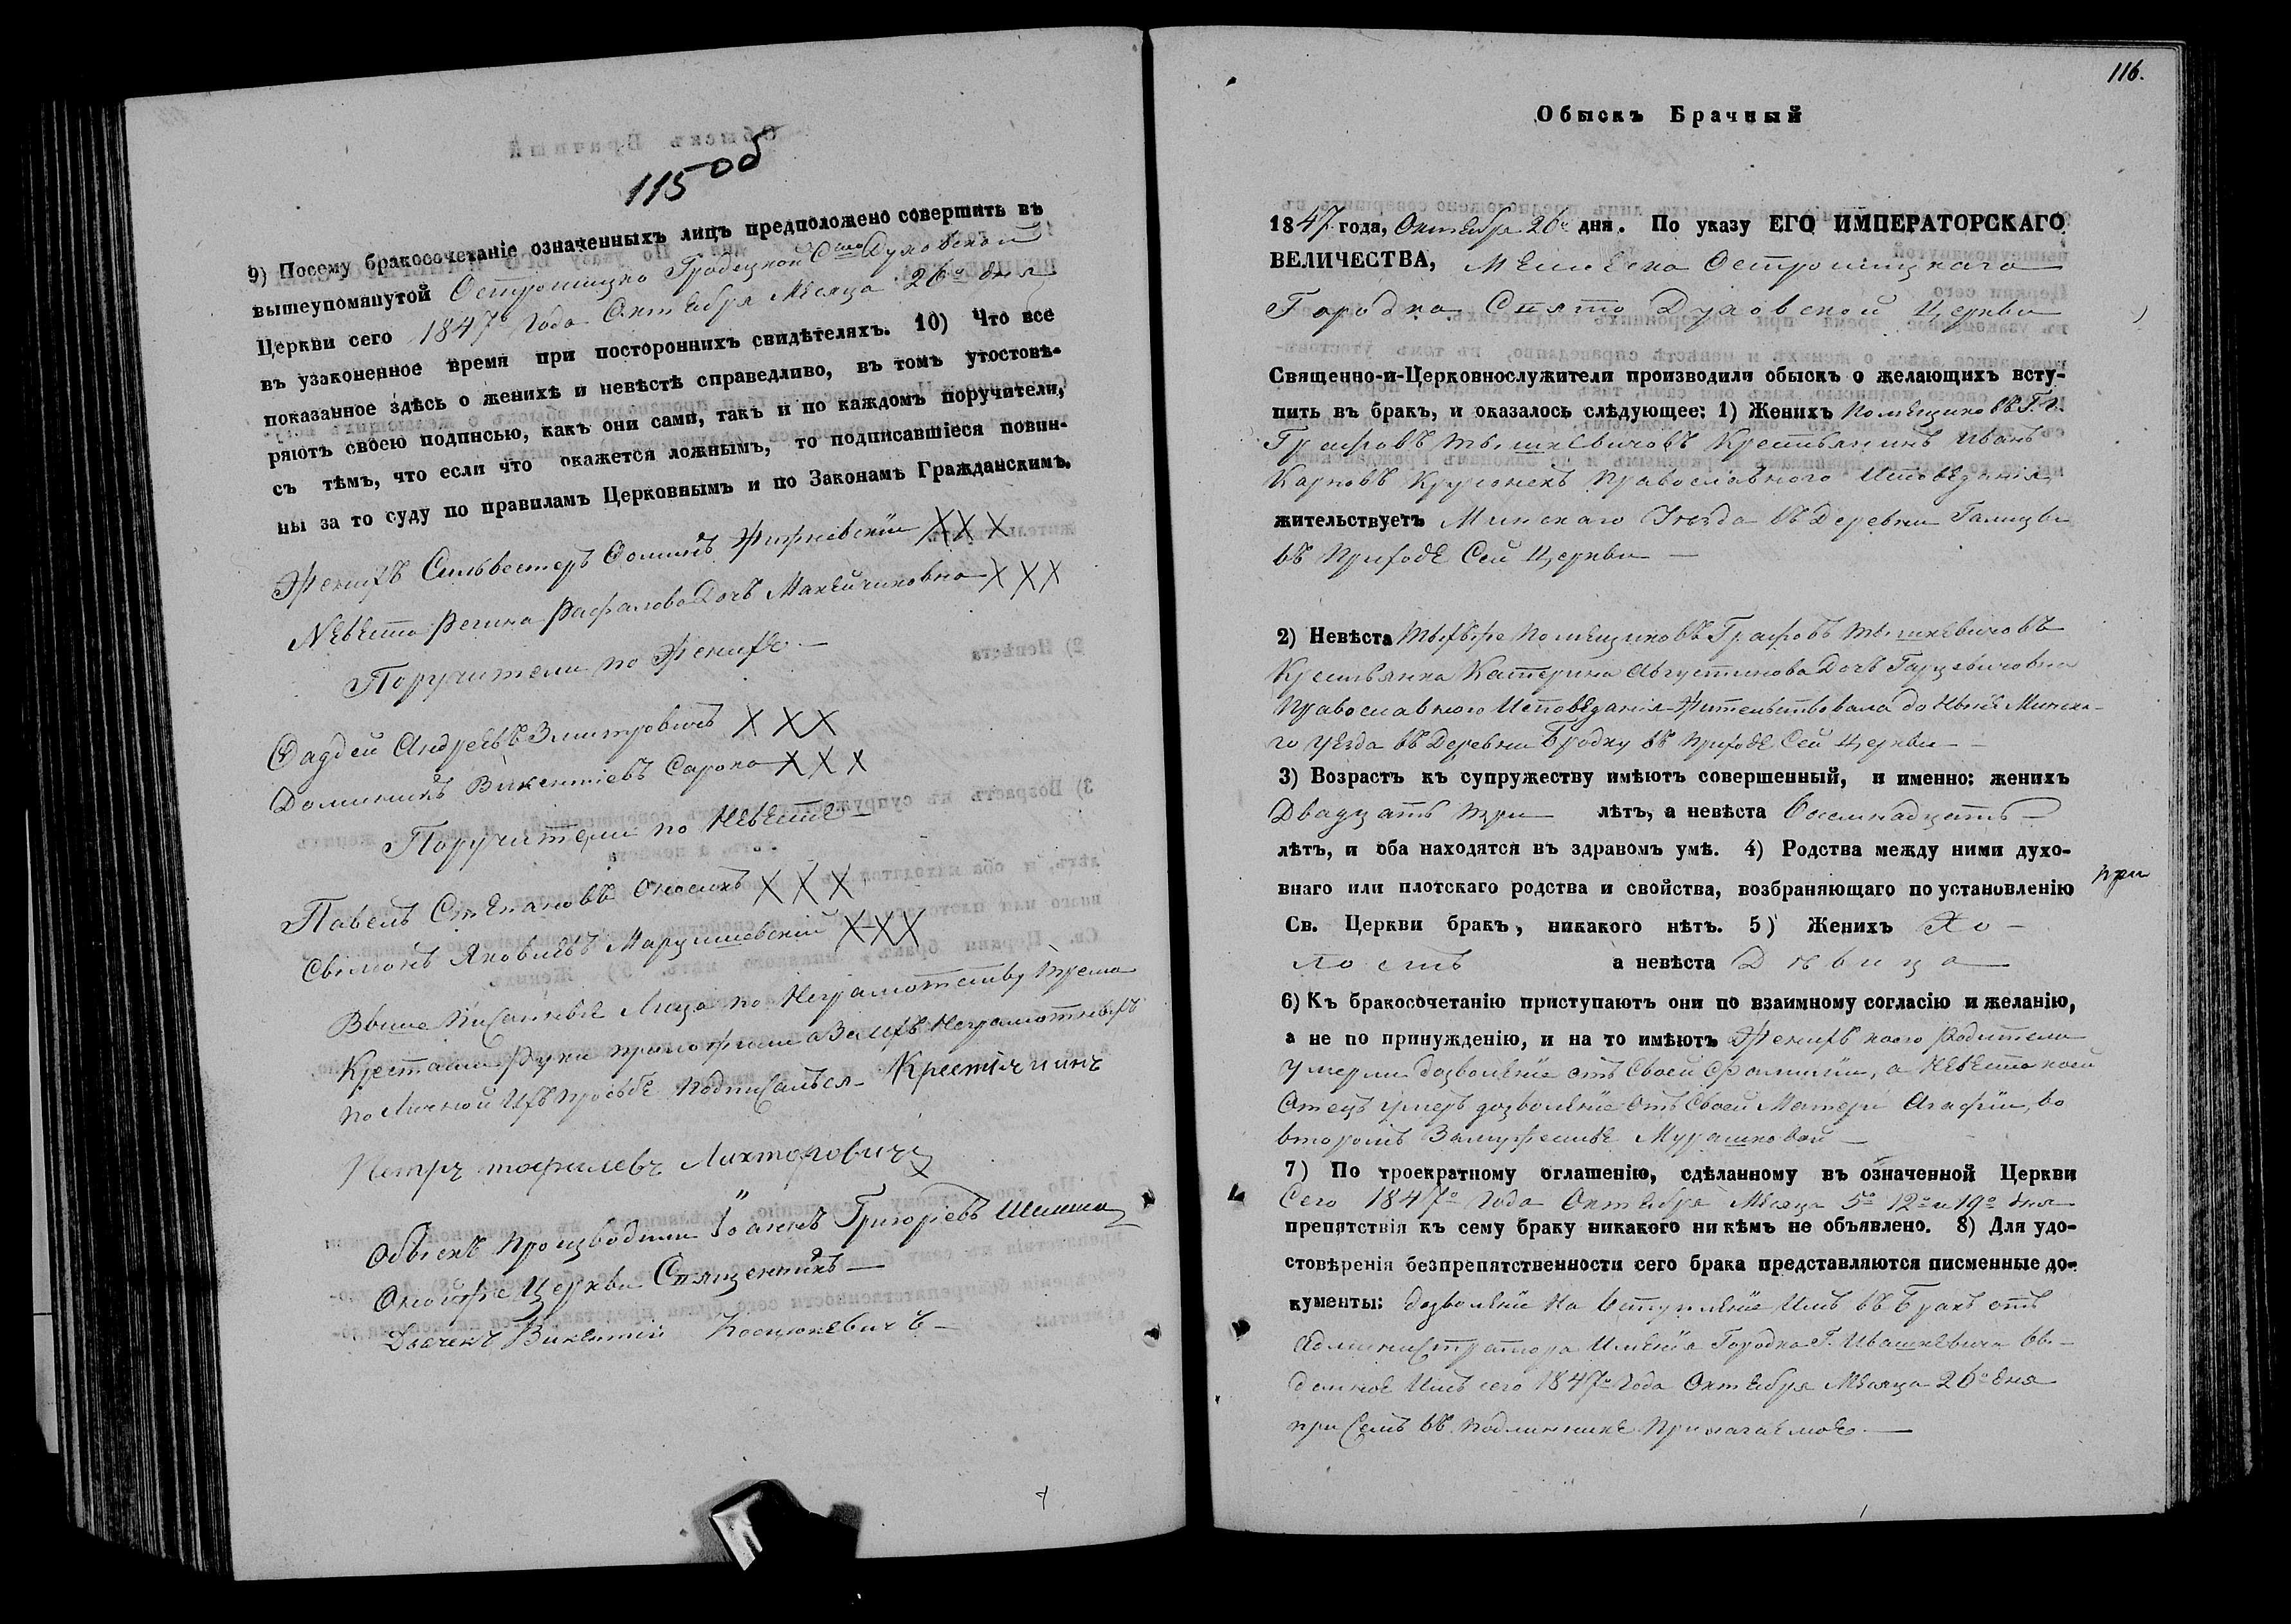 115 об
9) Посему бракосочетаніе означенныхъ лицъ предположено совершить въ
вышеупомянутой Острошицко Гродецкой С Духовской
Церкви сего 1847го Года Октября Месяца 26го дня
въ узаконенное время при постороннихъ свидѣтеляхъ. 10) Что все
показанное здѣсь о женихѣ и невѣстѣ справедливо, въ томъ утостовѣ-
ряютъ своею подписью, какъ они сами, такъ и по каждомъ поручители,
съ тѣмъ, что если что окажется ложнымъ, то подписавшіеся повин-
ны за то суду по правиламъ Церковнымъ и по Законамъ Гражданскимъ.
Женихъ Сильвестеръ Фоминъ ХХХ
Невеста Регина Рафалова Дочь ХХХ
Поручители по Женихе
Фаддей Андреевъ Змитровичъ ХХХ
Доминикъ Викентіевъ Сарока ХХХ
Поручители по Невесте
Павелъ Степановъ ХХХ
Яковлевъ Марушевскій ХХХ
Выше писанные Лица по Неграмотству трема
Крестами Руки приложили а За ихъ Неграмотныхъ
по Личной Ихъ просьбе подписался Крестіянинъ
Петръ Лихторовичъ
Обыскъ производили Іоаннъ Григоріевъ
Оной же Церкви Священникъ
Дьячекъ Викентій
116.
Обыскъ Брачный
1847 года, Октября 26го дня. По указу ЕГО ИМПЕРАТОРСКАГО
ВЕЛИЧЕСТВА, Местечка Острошицкаго
Городка Свято Духовской Церкви
Священно-и-Церковнослужители производили обыскъ о желающихъ всту-
пить въ бракъ, и оказалось слѣдующее: 1) Женихъ Помещиковъ Г.Г.
Графовъ Тышкевичовъ Крестьянинъ Иванъ
Карповъ Православного Исповеданія
жительствуетъ Минскаго Уезда въ Деревни
въ Приходе Сей Церкви
2) Невѣста Тыхъже Помещиковъ Графовъ Тышкевичовъ
Крестьянка Катерина Августинова Дочь
Православного Исповеданія Жительствовала до Ныне Минска-
го Уезда въ Деревни Бродку въ Приходе Сей Церкви
3) Возрастъ къ супружеству имѣютъ совершенный, и именно: женихъ
Двадцать три лѣтъ, а невѣста Осемнадцать
лѣтъ, и оба находятся въ здравомъ умѣ. 4) Родства между ними духо-
внаго или плотскаго родства и свойства, возбраняющаго по установленію
при
Св. Церкви бракъ, никакого нѣтъ. 5) Женихъ Хо-
лостъ а невѣста Дѣвица
6) Къ бракосочетанію приступаютъ они по взаимному согласію и желанію,
а не по принужденію, и на то имѣютъ Женихъ коего Родители
умерли дозволеніе отъ Своей Фамиліи, а Невеста коей
Отецъ умеръ дозволеніе Отъ Своей Матери Агафіи, во
второмъ Замужестве Мурашковой
7) По троекратному оглашенію, сдѣланному въ означенной Церкви
Сего 1847го Года Октября Месяца 5го 12го и 19го дня
препятствія къ сему браку никакого ни кѣмъ не объявлено. 8) Для удо-
стовѣренія безпрепятственности сего брака представляются писменные до-
кументы: дозволеніе На Вступленіе Имъ въ Бракъ отъ
Администратора Именія Городка Г. Ивашкевича вы-
данное Имъ сего 1847го Года Октября Месяца 26го дня
при Семъ въ подлиннике Прилагаемое.